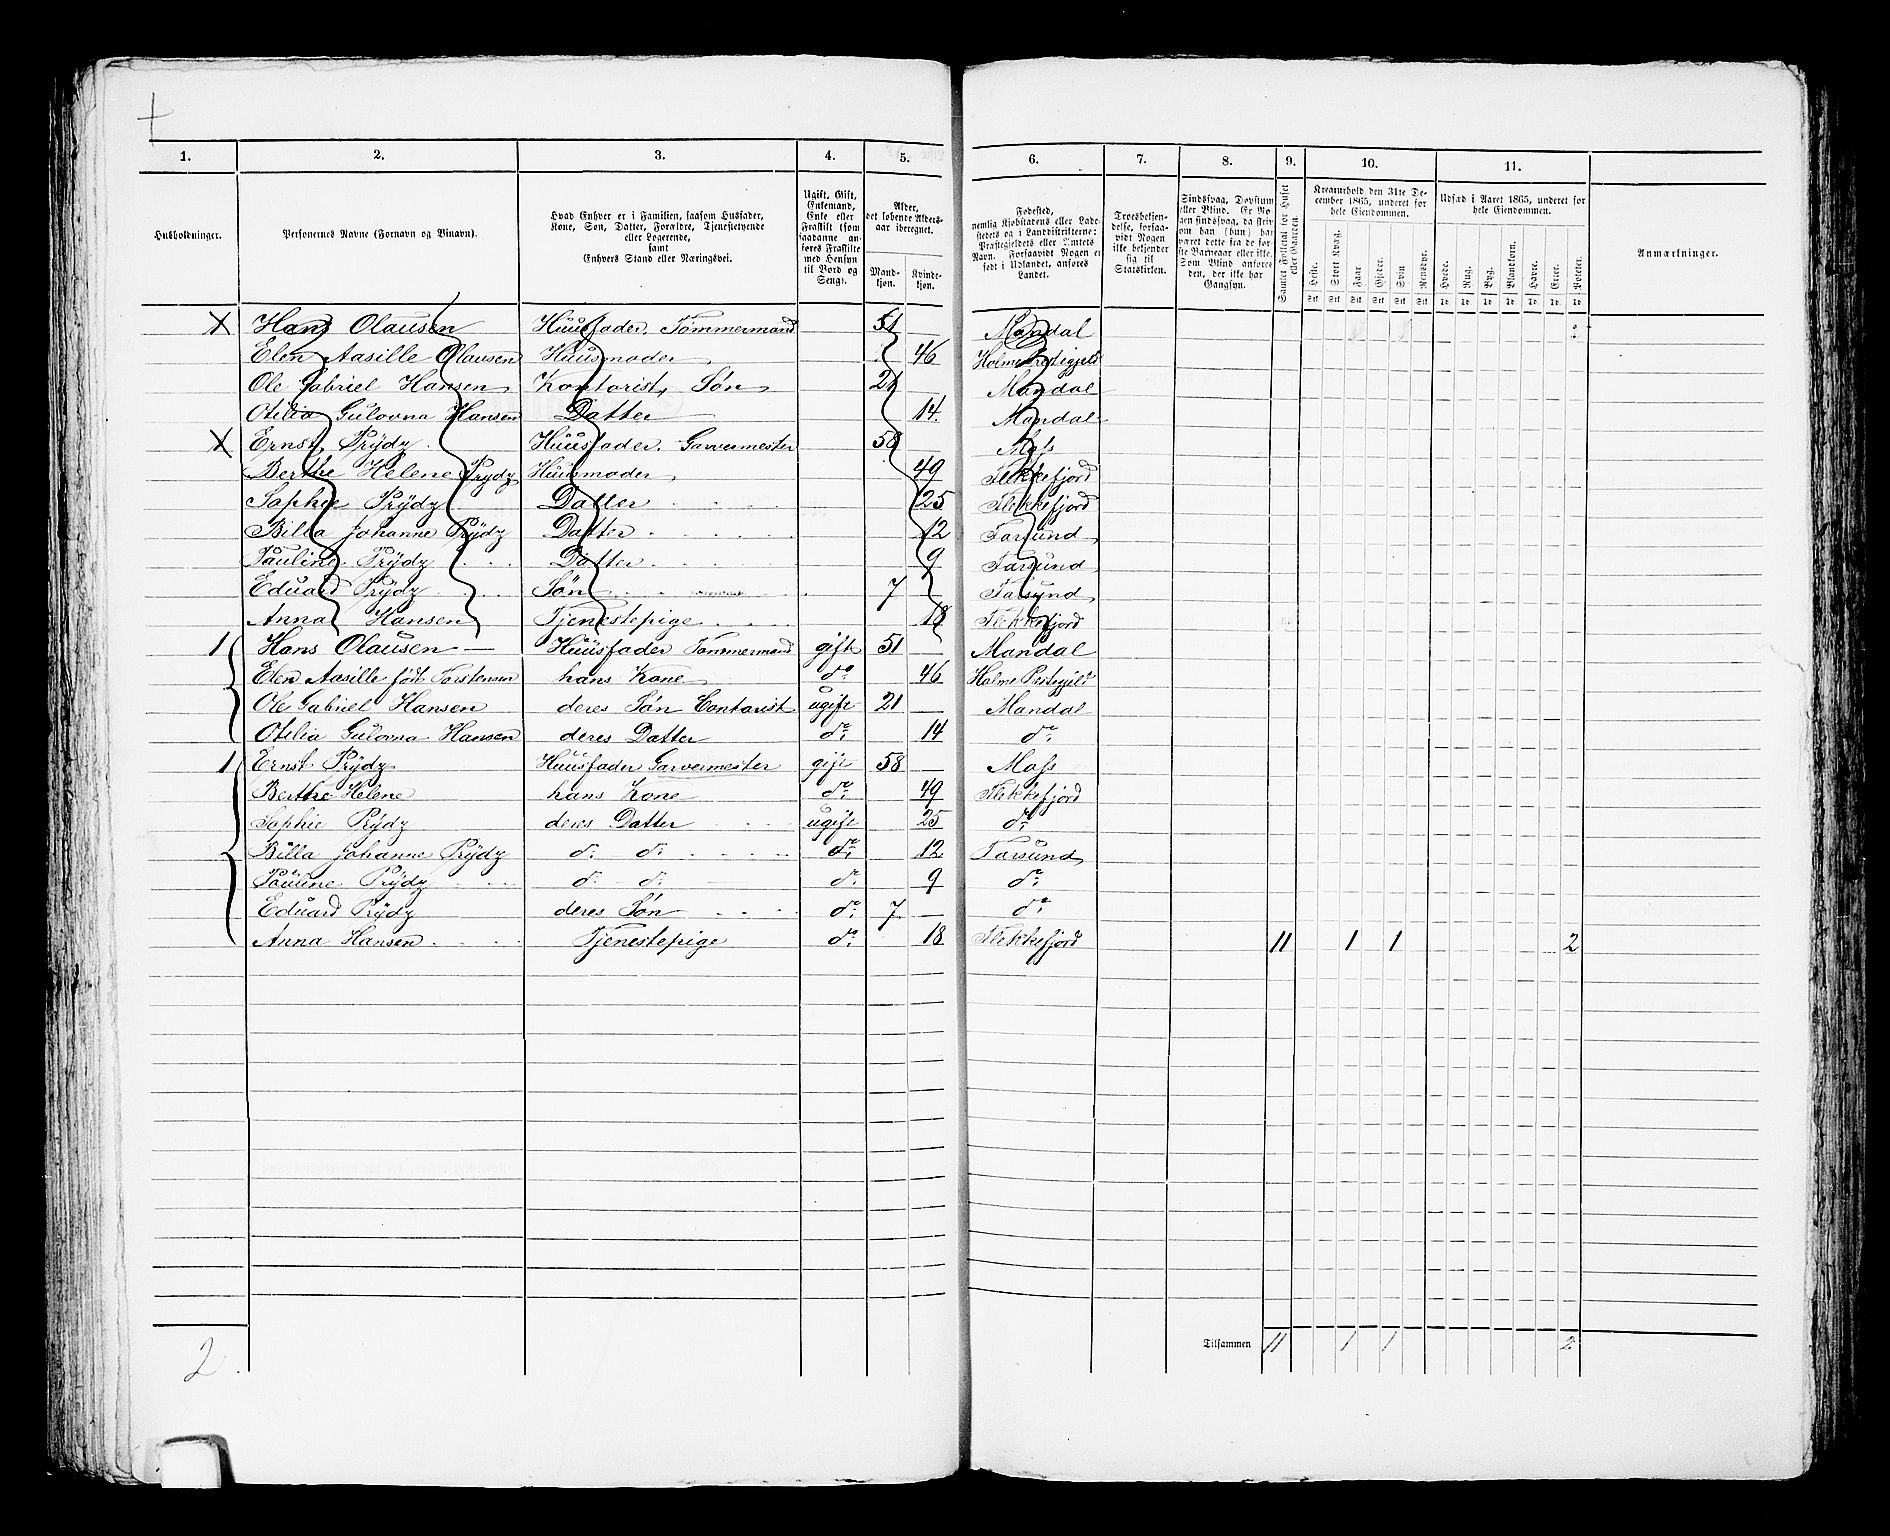 1. 2. 3. 4. 5. 6. 7. 8. 9. 10. 11.
Husholdninger. Personernes Navne (Fornavn og Tilnavn). Hvad Enhver er i Familien, saasom Husfader, Kone, Søn, Datter, Forældre, Tjenestetyende eller Logerende, samt Enhvers Stand eller Næringsvei. Ugift, Gift, Enkemand, Enke eller Fraskilt (som saadanne anføres Fraskilte med Hensyn til Bord og Seng). Alder, det løbende Aldersaar iberegnet. Mandkjøn. Kvindekjøn. Fødested, nemlig Kjøbstadens eller Ladestedets og i Landdistrikterne: Præstegjeldets eller Amtets Navn. Forsaavidt Nogen er født i Udlandet, anføres Landet. Troesbekjendelse, forsaavidt Nogen ikke bekjender sig til Statskirken. Sindssvag, Døvstum eller Blind. Er Nogen sindssvag, da skrives om han (hun) har været dette fra de første Barneaar eller ikke. Som Blind anføres den, der ikke har Gangsyn. Samlet Folketal for Huset eller Gaarden. Kreaturhold den 31te December 1865, underet for hele Eiendommen. Heste. Stort Kvæg. Faar. Gjeder. Svin. Rensdyr. Udsæd i Aaret 1865, underet for hele Eiendommen. Hvede. Rug. Byg. Blandkorn. Havre. Erter. Poteter. Anmærkninger.
X Hans Olausen Huusfader, Tømmermand 51 Mandal
Elen Aasille Olausen Huusmoder 46 Holme Prestegjeld
Ole Gabriel Hansen Kontorist, Søn 21 Mandal
Otelia Gulovna Hansen Datter 14. Mandal
X Ernst Prÿdz Huusfader, Garvermester 58 Moss
Berthe Helene Prydz Huusmoder 49 Flekkefjord
Sophie Prÿdz Datter 25 Flekkefjord
Billa Johanne Prÿdz Datter 12 Farsund
Pauline Prÿdz Datter 9 Farsund
Eduard Prÿdz Søn 7 Farsund
Anna Hansen Tjenestepige 18 Flekkefjord
1 Hans Olausen Huusfader Tømmermand gift 51 Mandal
Elen Aasille født Torstensen hans Kone do 46 Holme Prestegjeld
Ole Gabriel Hansen deres Søn Contorist ugift 21 Mandal
Otelia Gulovna Hansen deres Datter do 14 do
1 Ernst Prÿdz Huusfader Garvermester gift 58 Moss
Berthe Helene hans Kone do 49 Flekkefjord
Sophie Prÿdz deres Datter ugift 25 do
Billa Johanne Prÿdz do do do 12 Farsund
Pauline Prÿdz do do do 9 do
Eduard Prÿdz deres Søn do 7 do
Anna Hansen Tjenestepige do 18 Flekkefjord 11 1 1 2
2 Tilsammen 11 1 1 2